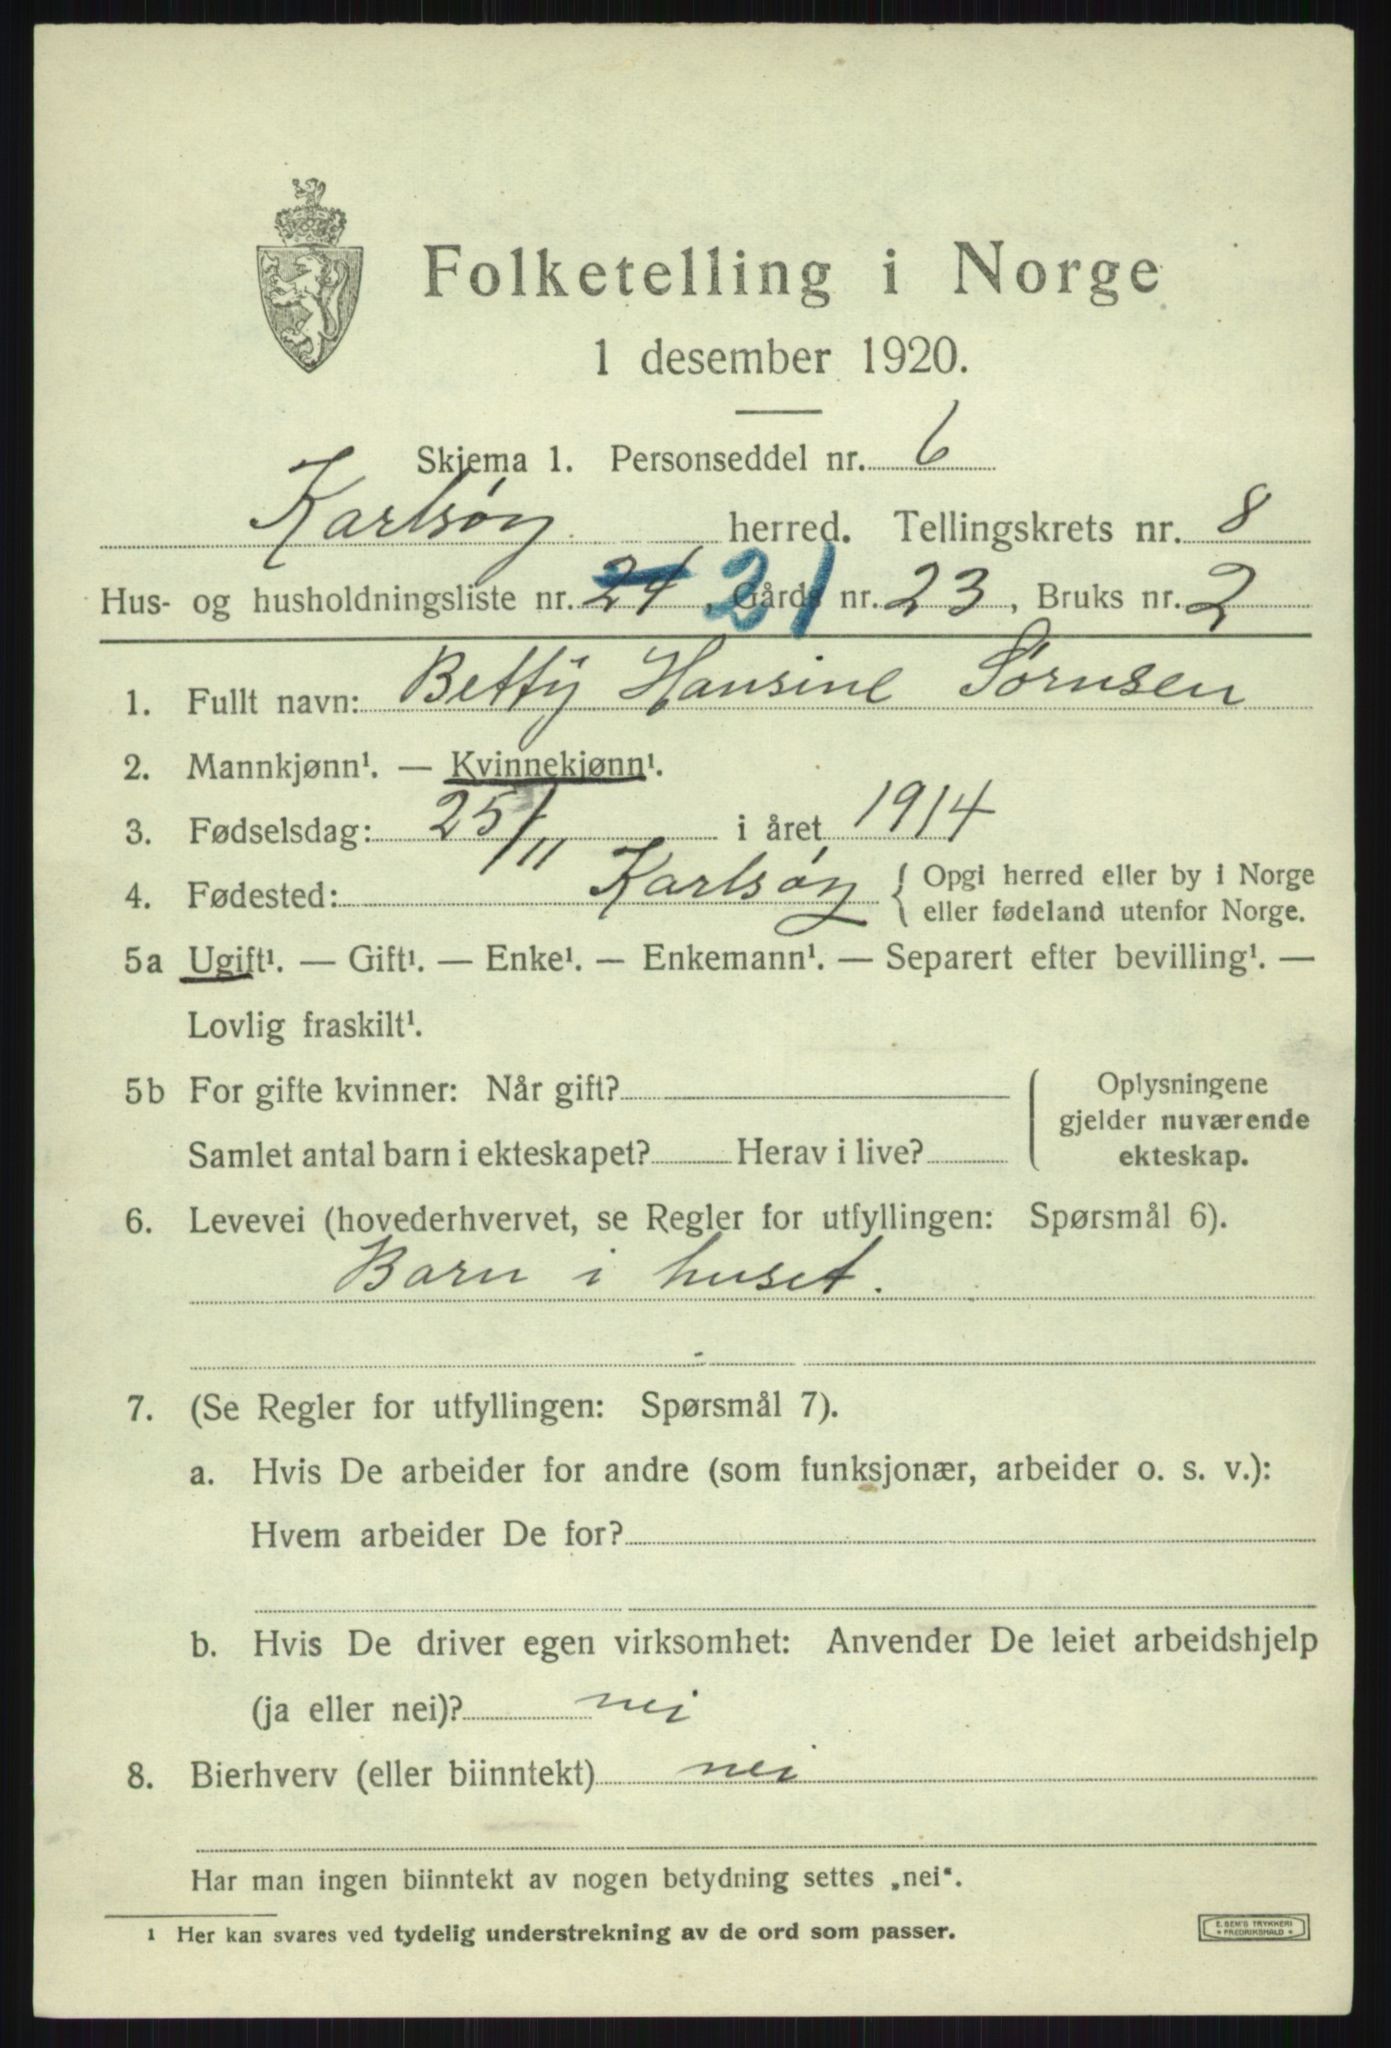 Folketelling i Norge
1 desember 1920.
Skjema 1. Personseddel nr. 6
Karlsøy herred. Tellingskrets nr. 8
Hus- og husholdningsliste nr. 24 21 Gårds nr. 23, Bruks nr. 2
1. Fullt navn: Betty Hansine Sørnsen
2. Mannkjønn¹. — Kvinnekjønn¹.
3. Fødselsdag: 25/11 i året 1914
4. Fødested: Karlsøy { Opgi herred eller by i Norge
eller fødeland utenfor Norge.
5a Ugift¹. — Gift¹. — Enke¹. — Enkemann¹. — Separert efter bevilling¹. —
Lovlig fraskilt¹.
5b For gifte kvinner: Når gift?
Samlet antal barn i ekteskapet? Herav i live?
Oplysningene
gjelder nuværende
ekteskap.
6. Levevei (hovederhvervet, se Regler for utfyllingen: Spørsmål 6).
Barn i huset.
7. (Se Regler for utfyllingen: Spørsmål 7).
a. Hvis De arbeider for andre (som funksjonær, arbeider o. s. v.):
Hvem arbeider De for?
b. Hvis De driver egen virksomhet: Anvender De leiet arbeidshjelp
(ja eller nei)? nei
8. Bierhverv (eller biinntekt) nei
Har man ingen biinntekt av nogen betydning settes „nei“.
1 Her kan svares ved tydelig understrekning av de ord som passer.
E. SEM'S TRYKKERI
* FREDRIKSHALD *